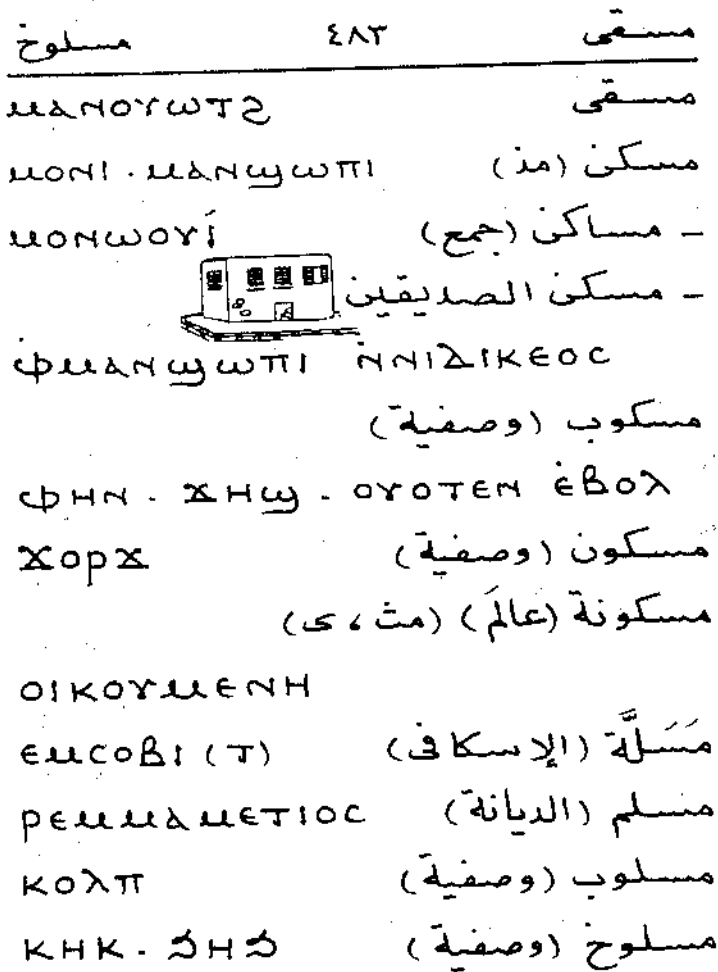 مسقى ٤٨٣ مسلوخ
مسقى ⲙⲁⲛⲟⲩⲱⲧϩ
مسكن (مذ) ⲙⲟⲛⲓ . ⲙⲁⲛϣⲱⲡⲓ
ـ مساكن (جمع) ⲙⲟⲛⲱⲟⲩⲓ́
ـ مسكن الصديقين
ⲫ̀ⲙⲁⲛϣⲱⲡⲓ ⲛ̀ⲛⲓⲇⲓⲕⲉⲟⲥ
مسكوب (وصفية)
ⲫⲏⲛ . ϫⲏϣ . ⲟⲩⲟⲧⲉⲛ ⲉ̀ⲃⲟⲗ
مسكون (وصفية) ϫⲟⲣϫ
مسكونة (عالَم) (مث ، ى)
ⲟⲓⲕⲟⲩⲙⲉⲛⲏ
مَسَلَّة (الإسكافى) ⲉⲙⲥⲟⲃⲓ (ⲧ)
مسلم (الديانة) ⲣⲉⲙⲙⲁⲙⲉⲧⲓⲟⲥ
مسلوب (وصفية) ⲕⲟⲗⲡ
مسلوخ (وصفية) ⲕⲏⲕ . ϧⲏϧ